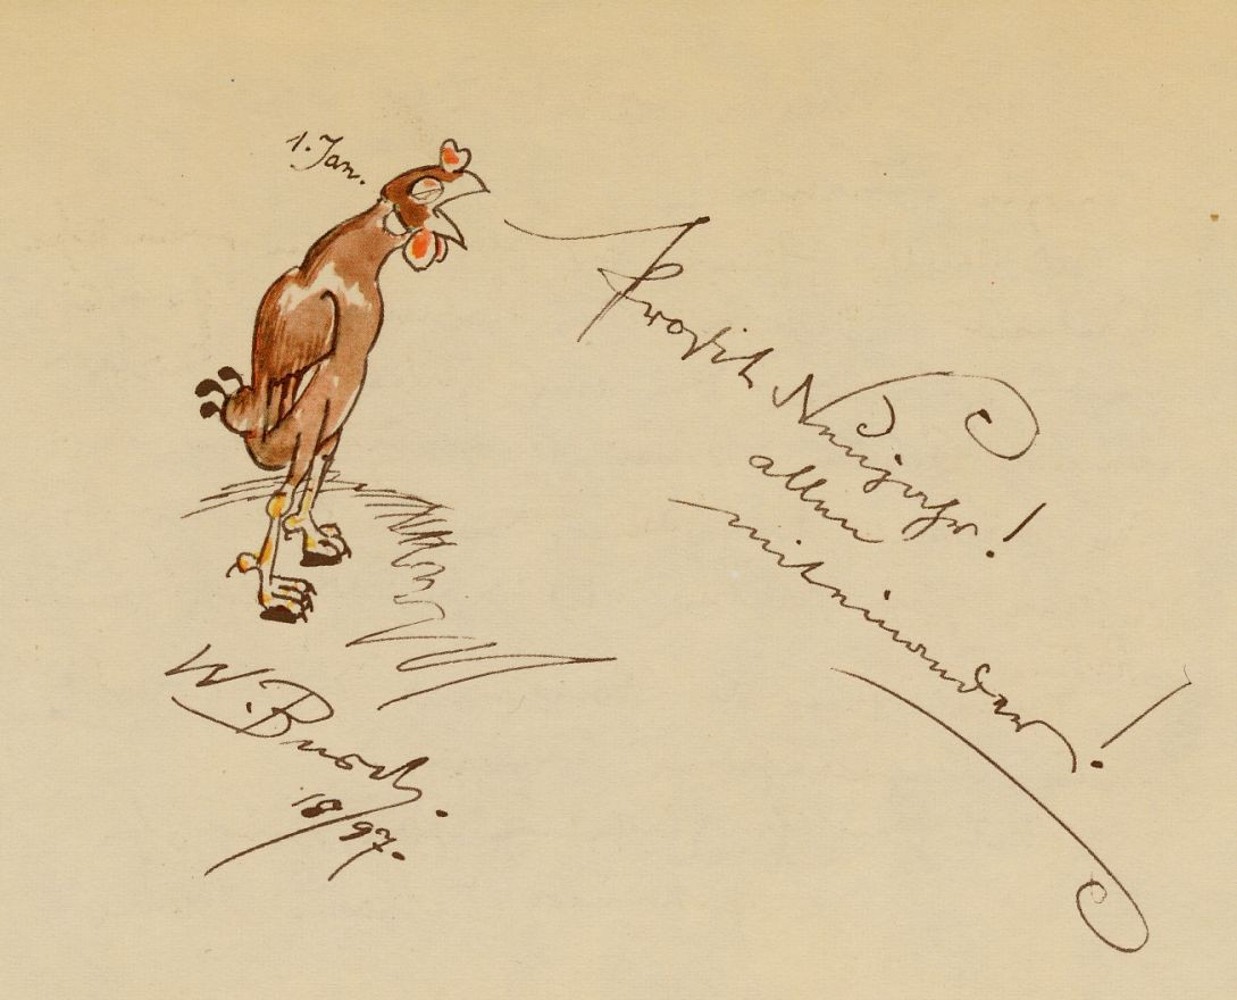 1. Jan.
Prosit Neujahr!
allen
miteinander!
W. Busch.
18/97.